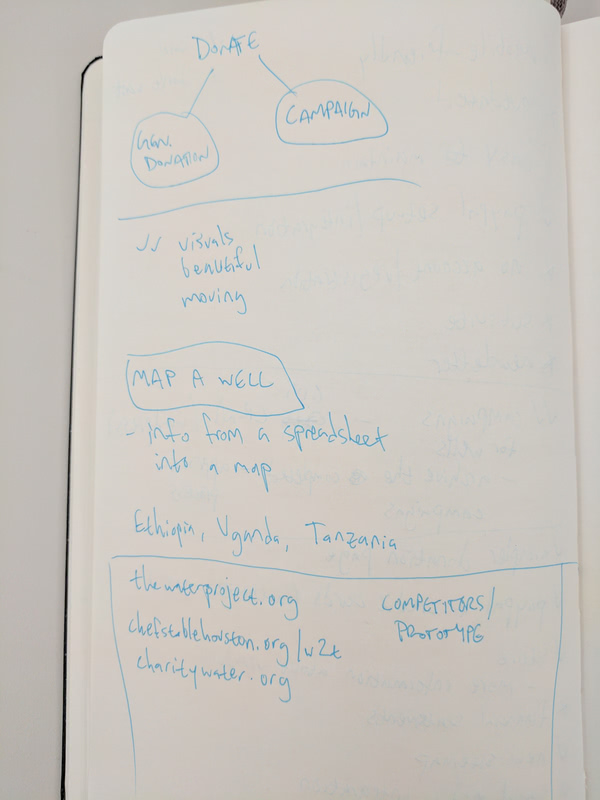 DONATE
GEN.
DONATION
CAMPAIGN
visuals
beautiful
moving
MAP A WELL
- info from a spreadsheet
into a map
Ethiopia, Uganda, Tanzania
thewaterproject.org
chefstablehouston.org/v2t
charitywater.org
COMPETITORS/
PROTOTYPE